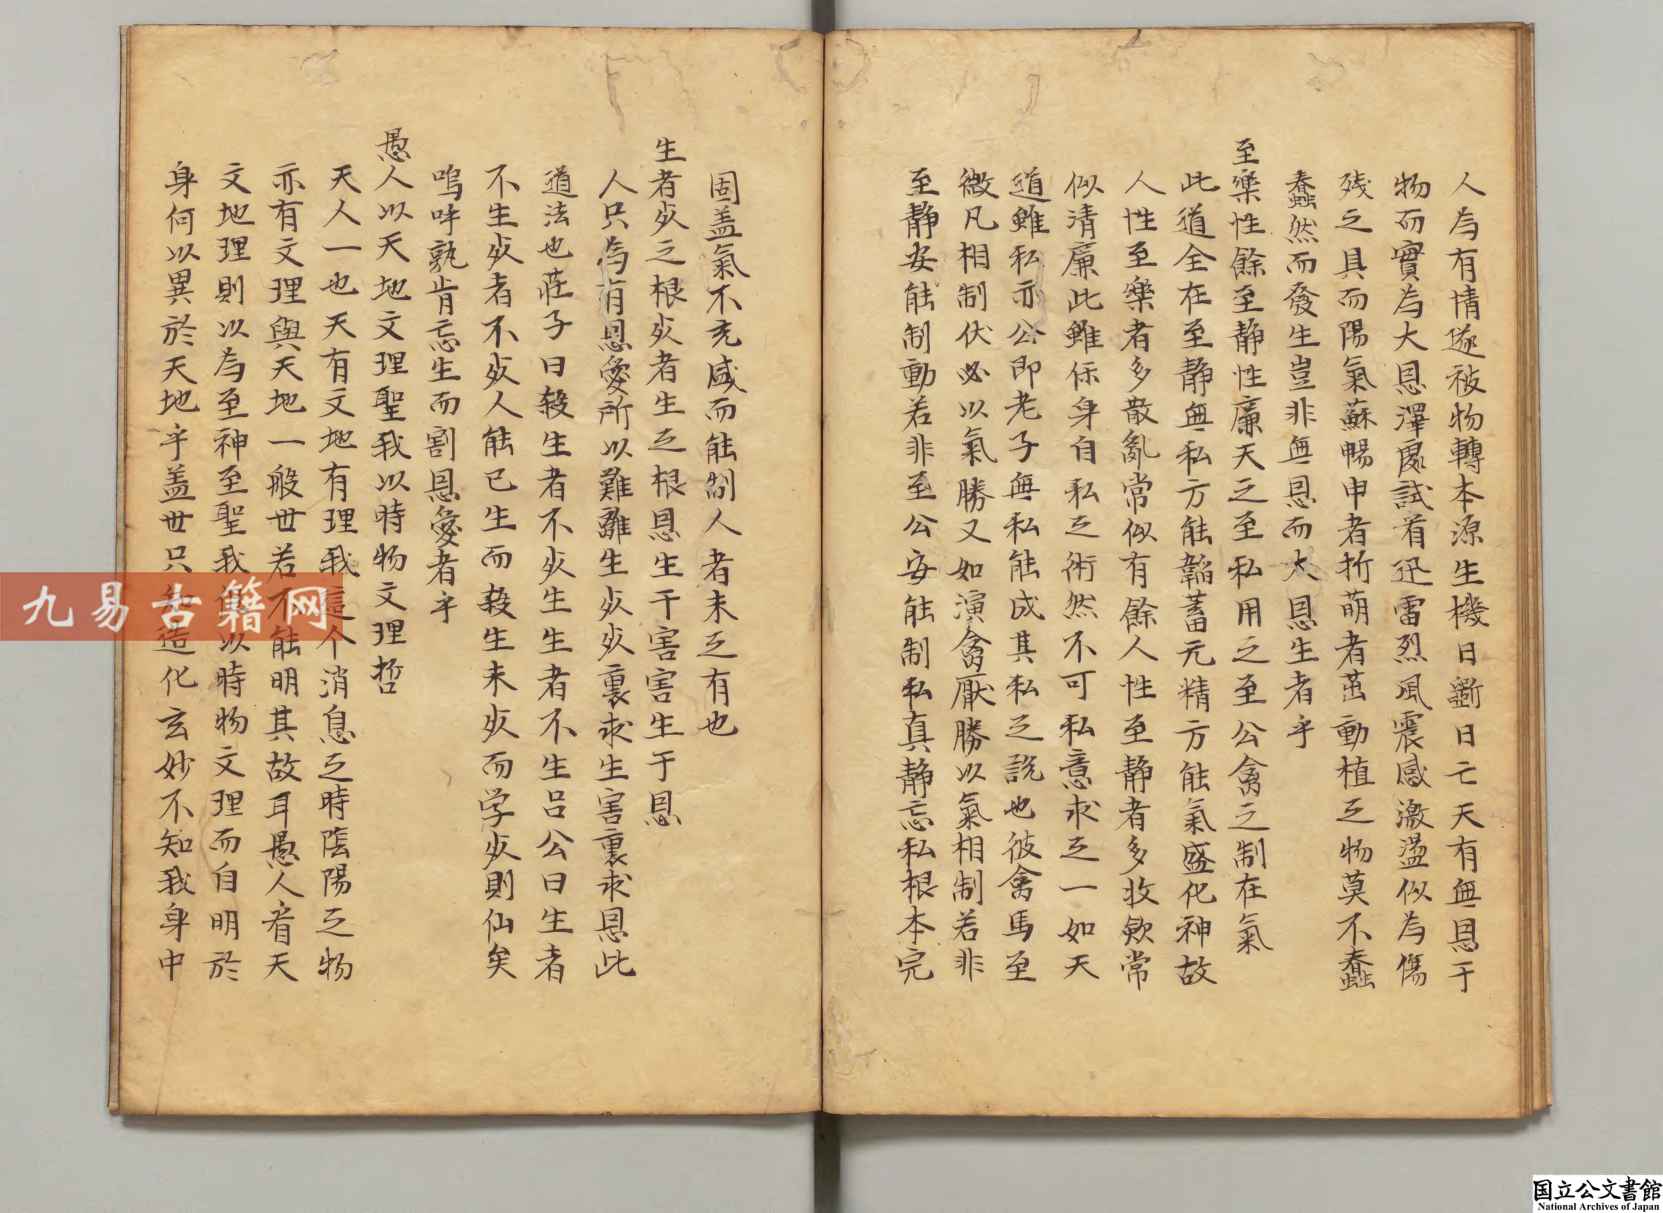 人為有情遂被物轉本源生機日斵日亡天有無恩于
物而實為大恩澤處試看迅雷烈風震感激盪似為傷
残之具而陽氣蘇暢申者折萌者茁動植之物莫不蠢
蠢然而發生豈非無恩而大恩生者乎
至樂性餘至静性廉天之至私用之至公禽之制在氣
此道全在至静無私方能韜蓄元精方能氣盛化神故
人性至樂者多散亂常似有餘人性至静者多收斂常
似清廉此雖保身自私之術然不可私意求之一如天
道雖私亦公即老子無私能成其私之説也彼禽馬至
微凡相制伏必以氣勝又如演禽厭勝以氣相制若非
至静安能制動若非至公安能制私真静忘私根本完
固盖氣不充盛而能制人者未之有也
生者㱏之根㱏者生之根恩生于害害生于恩
人只為有恩愛所以難離生㱏㱏裏求生害裏求恩此
道法也莊子曰殺生者不㱏生生者不生吕公曰生者
不生㱏者不㱏人能已生而殺生未㱏而学㱏則仙矣
嗚呼孰肯忘生而割恩愛者乎
愚人以天地文理聖我以時物文理哲
天人一也天有文地有理我這个消息之時陰陽之物
亦有文理與天地一般世若不能明其故耳愚人看天
文地理則以為至神至聖我以時物文理而自明於
身何以異於天地乎盖世只知造化玄妙不知我身中
九易古籍网
国立公文書館
National Archives of Japan